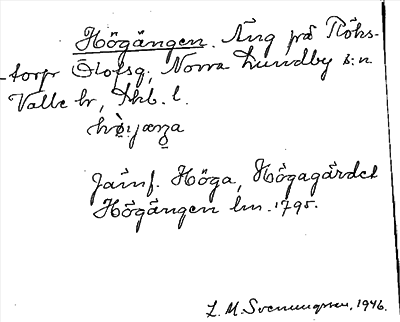 Högängen. Äng på Röks-
-torp Olofsg, Norra Lundby s:n
Valle hr, Skb. l.
Jämf. Höga, Högagärdet
Högängen lm. 1795.
L. M. Svenungsson, 1946.